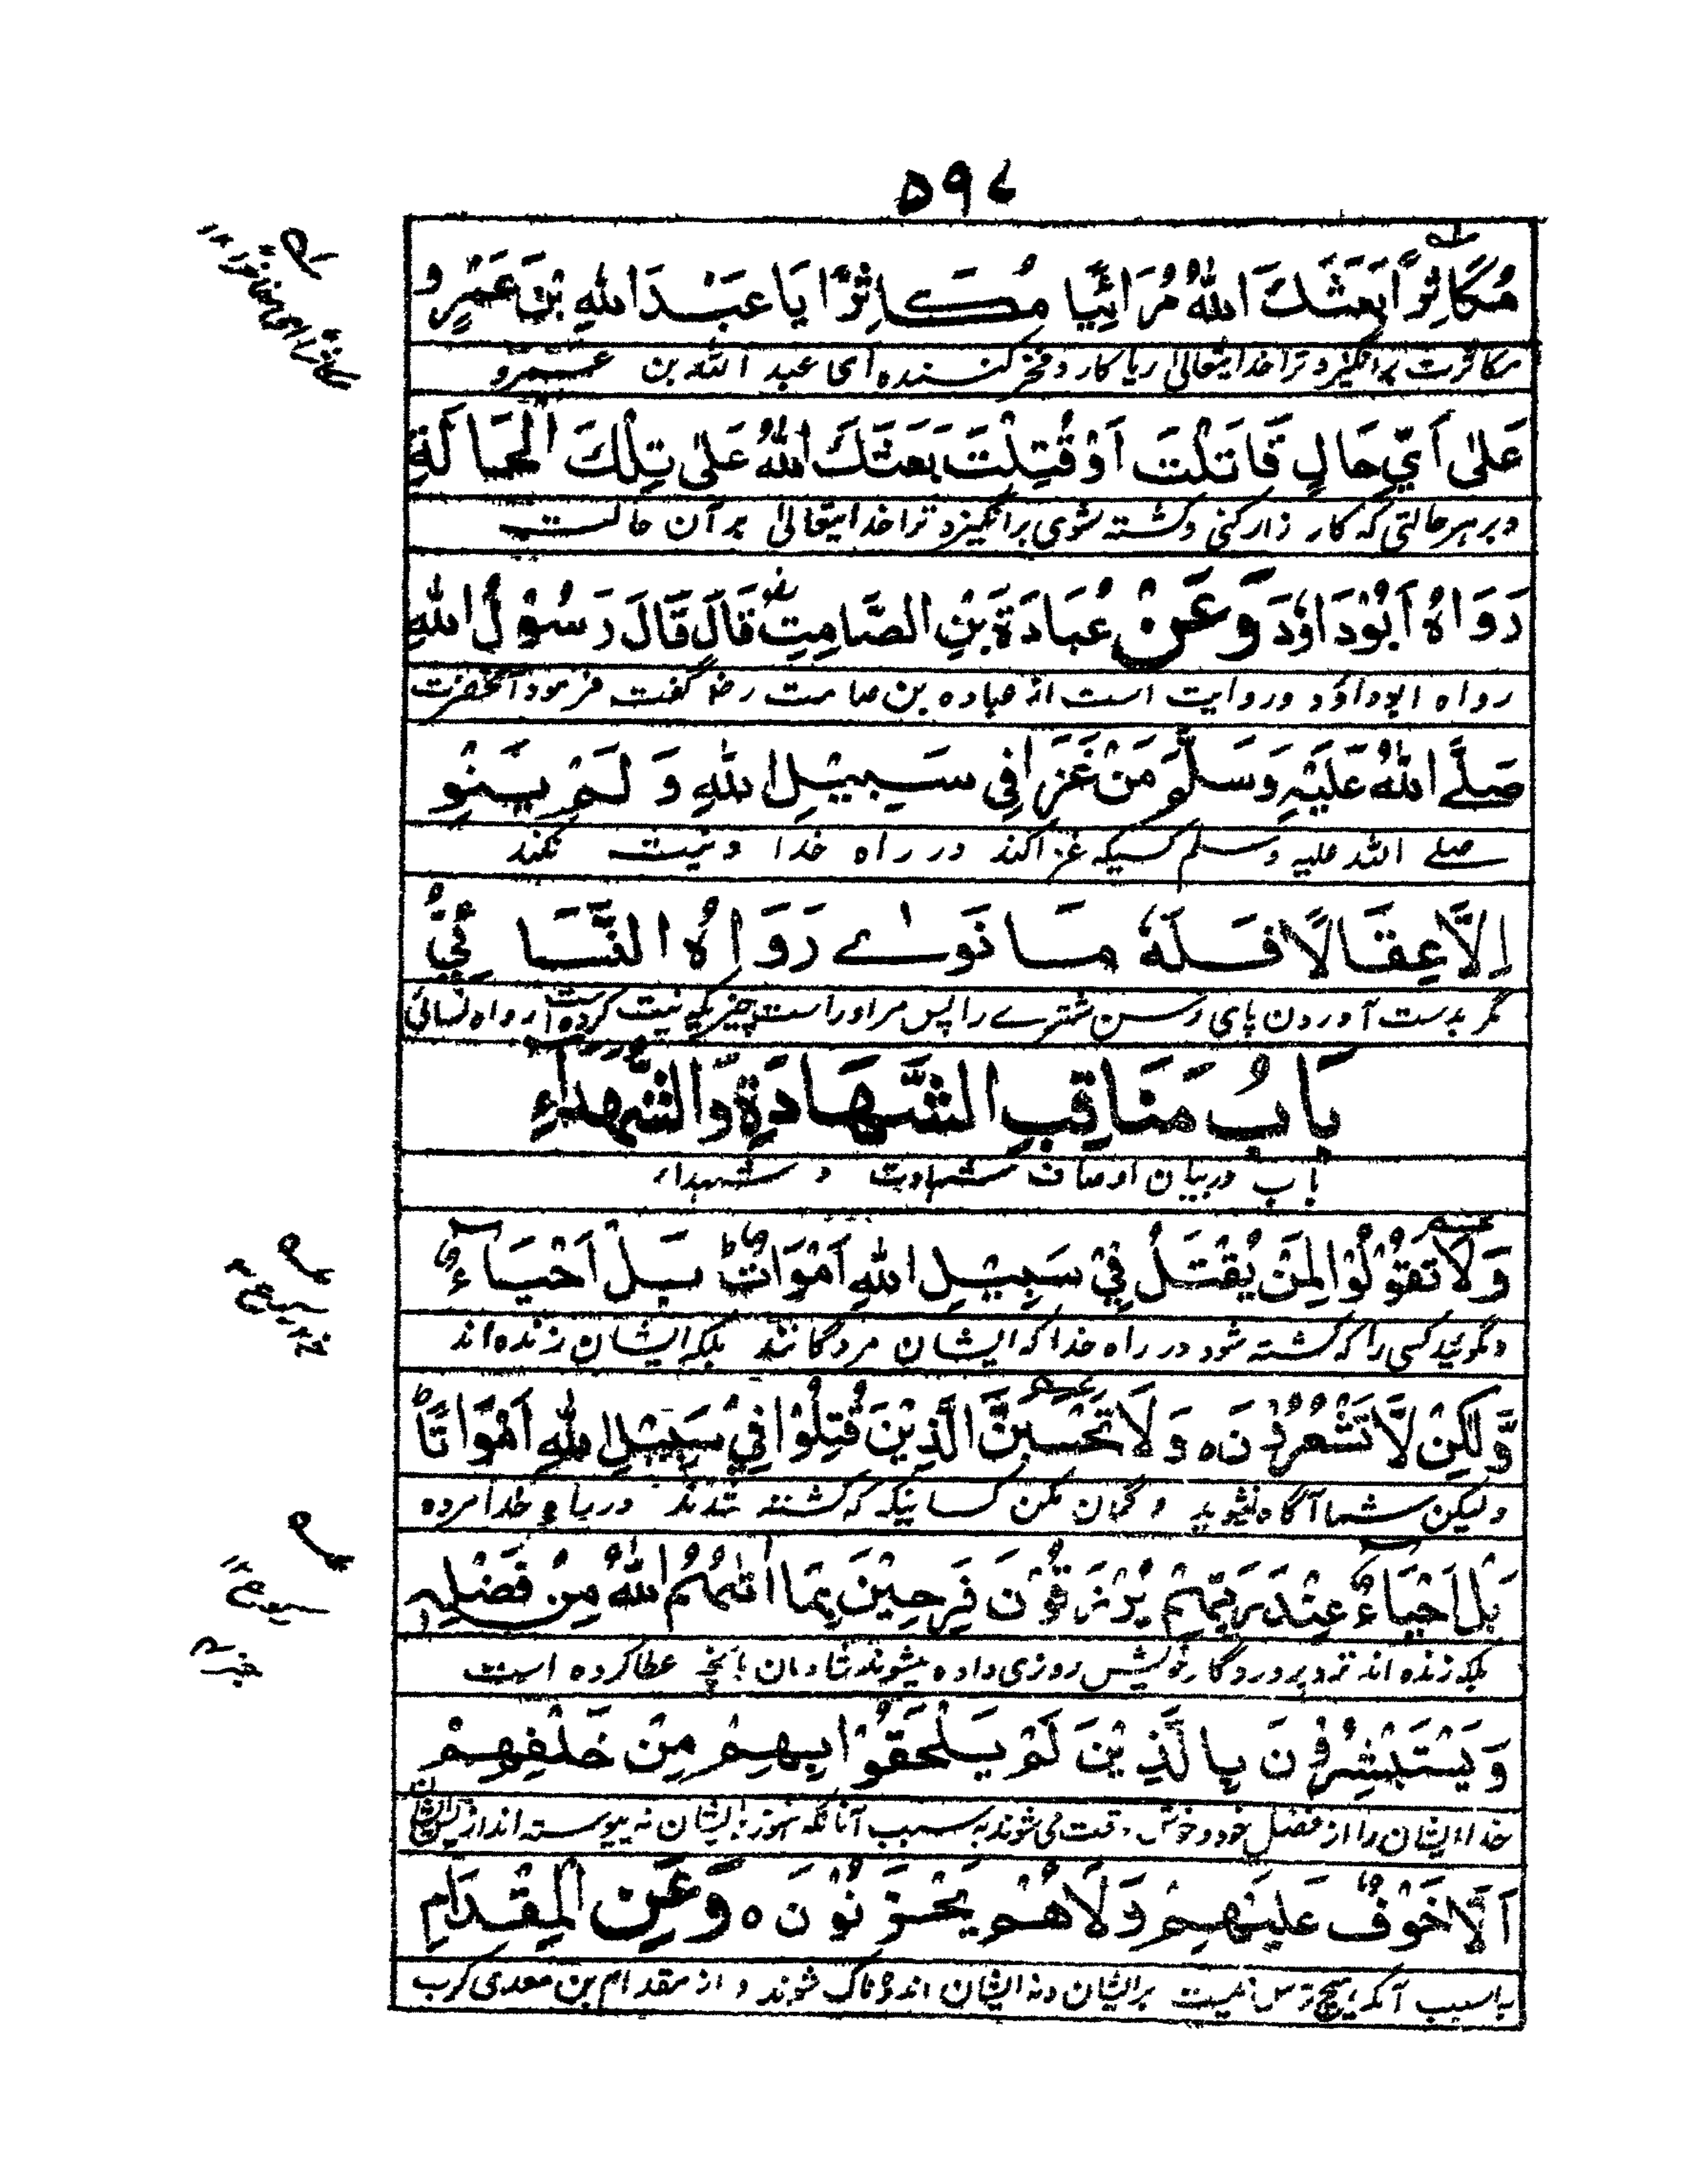 ۵۹۷
مُكَاثِرًا بَعَثَكَ اللهُ مُرَائِيًا مُكَاثِرًا يَا عَبْدَ اللهِ بْنَ عَمْرٍو
مکاثرت برانگیزد ترا خدایتعالیٰ ریا کار و فخر کننده ای عبد الله بن عمرو
عَلىٰ اَيِّ حَالٍ قَاتَلْتَ اَوْ قُتِلْتَ بَعَثَكَ اللهُ عَلىٰ تِلْكَ الْحَالَةِ
و بر هر حالتی که کار زار کنی و کشته شوی برانگیزد ترا خدایتعالیٰ بر آن حالت
رَوَاهُ اَبُوْدَاوٗدَ وَعَنْ عُبَادَةَ بْنِ الصَّامِتِ رض قَالَ قَالَ رَسُوْلُ اللهِ
رواه ابوداؤد و روایت است از عباده بن صامت رض گفت فرمود آنحضرت
صَلَّے اللهُ عَلَيْهِ وَسَلَّمَ مَنْ غَزَا فِي سَبِيْلِ اللهِ وَ لَمْ يَنْوِ
صلے الله علیه وسلم کسیکه غزا کند در راه خدا و نیت نکند
اِلَّا عِقَالًا فَلَهٗ مَا نَوٰے رَوَاهُ النَّسَائِيُّ
مگر بدست آوردن پای رسن شترے را پس مر اوراست چیزیکه نیت کرده است رواه نسائی
بَابُ مَنَاقِبِ الشَّهَادَةِ وَالشُّهَدَاءِ
باب در بیان اوصاف شهادت و شهداء
وَلَا تَقُوْلُوْا لِمَنْ يُقْتَلُ فِيْ سَبِيْلِ اللهِ اَمْوَاتٌ ط بَلْ اَحْيَاءٌ
و مگوئید کسی را که کشته شود در راه خدا که ایشان مردگانند بلکه ایشان زنده اند
وَّلٰكِنْ لَّا تَشْعُرُوْنَ ه وَلَا تَحْسَبَنَّ الَّذِيْنَ قُتِلُوْا فِيْ سَبِيْلِ اللهِ اَمْوَاتًا ط
ولیکن شما آگاه نشوید و گمان مکن کسانیکه که کشته شدند در راه خدا مرده
بَلْ اَحْيَاءٌ عِنْدَ رَبِّهِمْ يُرْزَقُوْنَ فَرِحِيْنَ بِمَا اٰتٰهُمُ اللهُ مِنْ فَضْلِهِ
بلکه زنده اند نزد پروردگار خویش روزی داده میشوند شادمان بآنچه عطا کرده است
وَيَسْتَبْشِرُوْنَ بِالَّذِيْنَ لَمْ يَلْحَقُوْا بِهِمْ مِنْ خَلْفِهِمْ
خدا ایشان را از فضل خود و خوش وقت می شوند به سبب آنانکه هنوز بایشان نه پیوسته اند از پس ایشان
اَلَّا خَوْفٌ عَلَيْهِمْ وَلَا هُمْ يَحْزَنُوْنَ ه وَعَنِ الْمِقْدَامِ
باسبب آنکه هیچ ترس نیست بر ایشان و نه ایشان اندوهناک شوند و از مقدام بن معدی کرب